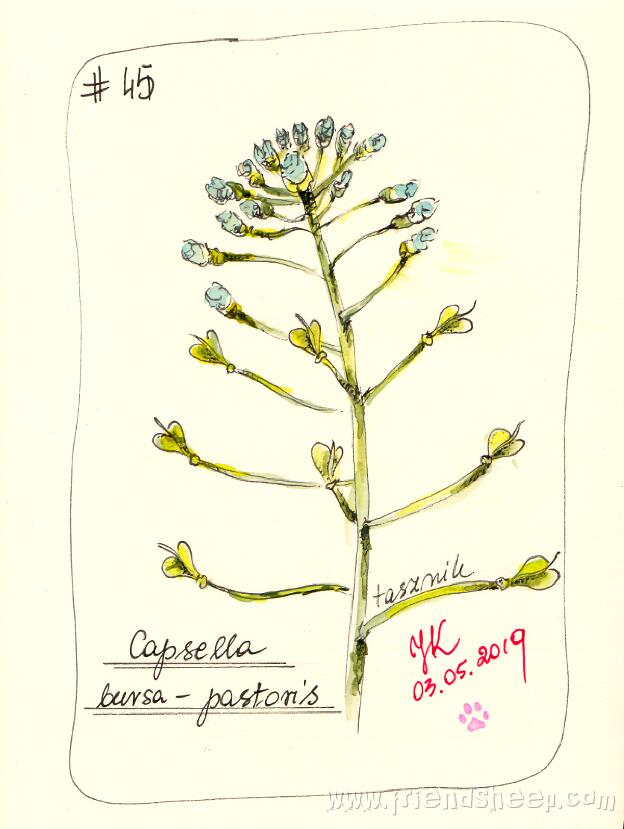 # 45
tasznik
Capsella
bursa - pastoris
JK
03.05.2019
www.friendsheep.com